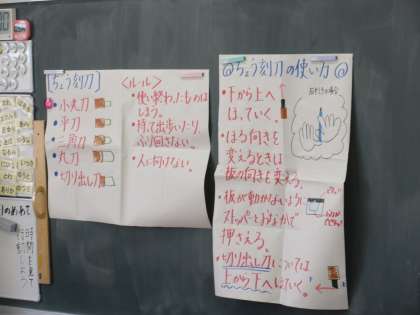 [ちょう刻刀]
・小丸刀
・平刀
・三角刀
・丸刀
・切り出し刀
<ルール>
・使い終わったものは
しまう。
・持って出歩いたり、
ふり向さない。
・人に向けない。
◎ちょう刻刀の使い方◎
・下から上へ
ほっていく。
・ほる向きを
変えるときは
板の向きを変える。
・板が動かないように
ストッパとおなかで
押さえる。
・切り出し刀については
上から下へほっていく。
のめあて
時間を見て
行動しよう